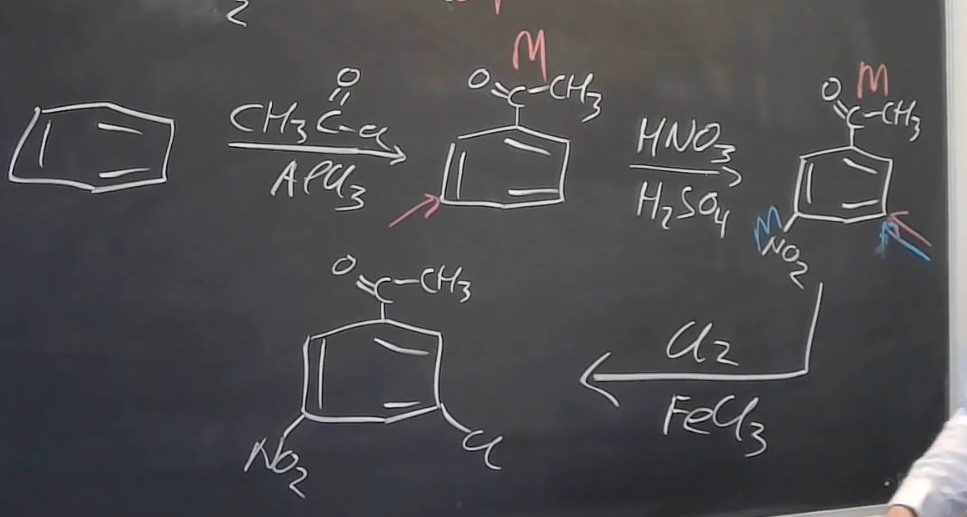 2
M
O
CH3 C-Cl
AlCl3
O C-CH3
HNO3
H2SO4
M
O C-CH3
M
NO2
Cl2
FeCl3
O C-CH3
NO2
Cl